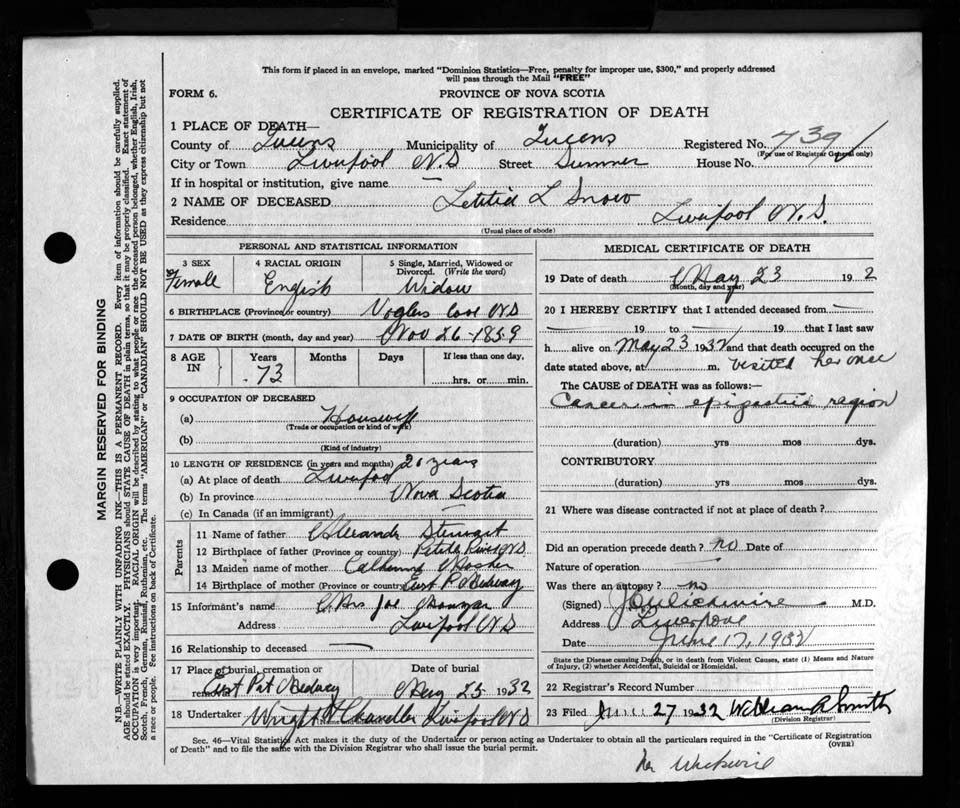 This form if placed in an envelope, marked "Dominion Statistics—Free, penalty for improper use, $300," and properly addressed
will pass through the Mail "FREE"
FORM 6. PROVINCE OF NOVA SCOTIA
CERTIFICATE OF REGISTRATION OF DEATH
1 PLACE OF DEATH—
County of Queens Municipality of Queens Registered No. 7391
(For use of Registrar General only)
City or Town Liverpool N.S Street Summer House No.
If in hospital or institution, give name —
2 NAME OF DECEASED Letitia L Snow
Residence Liverpool N.S.
(Usual place of abode)
PERSONAL AND STATISTICAL INFORMATION
3 SEX 4 RACIAL ORIGIN 5 Single, Married, Widowed or
Divorced. (Write the word)
Female English Widow
6 BIRTHPLACE (Province or country) Voglers Cove N S
7 DATE OF BIRTH (month, day and year) Nov 26 - 1859
8 AGE IN Years Months Days If less than one day,
73 hrs. or min.
9 OCCUPATION OF DECEASED
(a) Housewife
(Trade or occupation or kind of work)
(b)
(Kind of industry)
10 LENGTH OF RESIDENCE (in years and months) 20 years
(a) At place of death Liverpool
(b) In province Nova Scotia
(c) In Canada (if an immigrant)
Parents
11 Name of father Stewart
12 Birthplace of father (Province or country) Petite Riviere N S
13 Maiden name of mother Catherine Mosher
14 Birthplace of mother (Province or country) East Pt Medway
15 Informant's name Mrs Joe
Address Liverpool N S
16 Relationship to deceased —
17 Place of burial, cremation or Date of burial
removal Medway 25 1932
18 Undertaker Wright & Chandler Liverpool N S
MEDICAL CERTIFICATE OF DEATH
19 Date of death May 23 19 2
(Month, day and year)
20 I HEREBY CERTIFY that I attended deceased from
— 19 to — 19 that I last saw
h alive on May 23 1932 and that death occurred on the
date stated above, at m. Visited her once
The CAUSE of DEATH was as follows:—
Cancer in epigastric region
(duration) yrs mos dys.
CONTRIBUTORY
(duration) yrs mos dys.
21 Where was disease contracted if not at place of death?
Did an operation precede death? no Date of
Nature of operation
Was there an autopsy? no
(Signed) M.D.
Address Liverpool
Date June 17, 1932
State the Disease causing Death, or in death from Violent Causes, state (1) Means and Nature
of Injury, (2) whether Accidental, Suicidal or Homicidal.
22 Registrar's Record Number
23 Filed 27 1932 William Smith
(Division Registrar)
Sec. 46—Vital Statistics Act makes it the duty of the Undertaker or person acting as Undertaker to obtain all the particulars required in the "Certificate of Registration
of Death" and to file the same with the Division Registrar who shall issue the burial permit. (OVER)
MARGIN RESERVED FOR BINDING
N.B.—WRITE PLAINLY WITH UNFADING INK—THIS IS A PERMANENT RECORD. Every item of information should be carefully supplied.
AGE should be stated EXACTLY. PHYSICIANS should STATE CAUSE OF DEATH in plain terms, so that it may be properly classified. Exact statement of
OCCUPATION is very important. RACIAL ORIGIN will be described by stating to what people or race the deceased person belonged, whether English, Irish,
Scotch, French, German, Russian, Ruthenian, etc. The terms "AMERICAN" or "CANADIAN" SHOULD NOT BE USED as they express citizenship but not
a race or people. See instructions on back of Certificate.